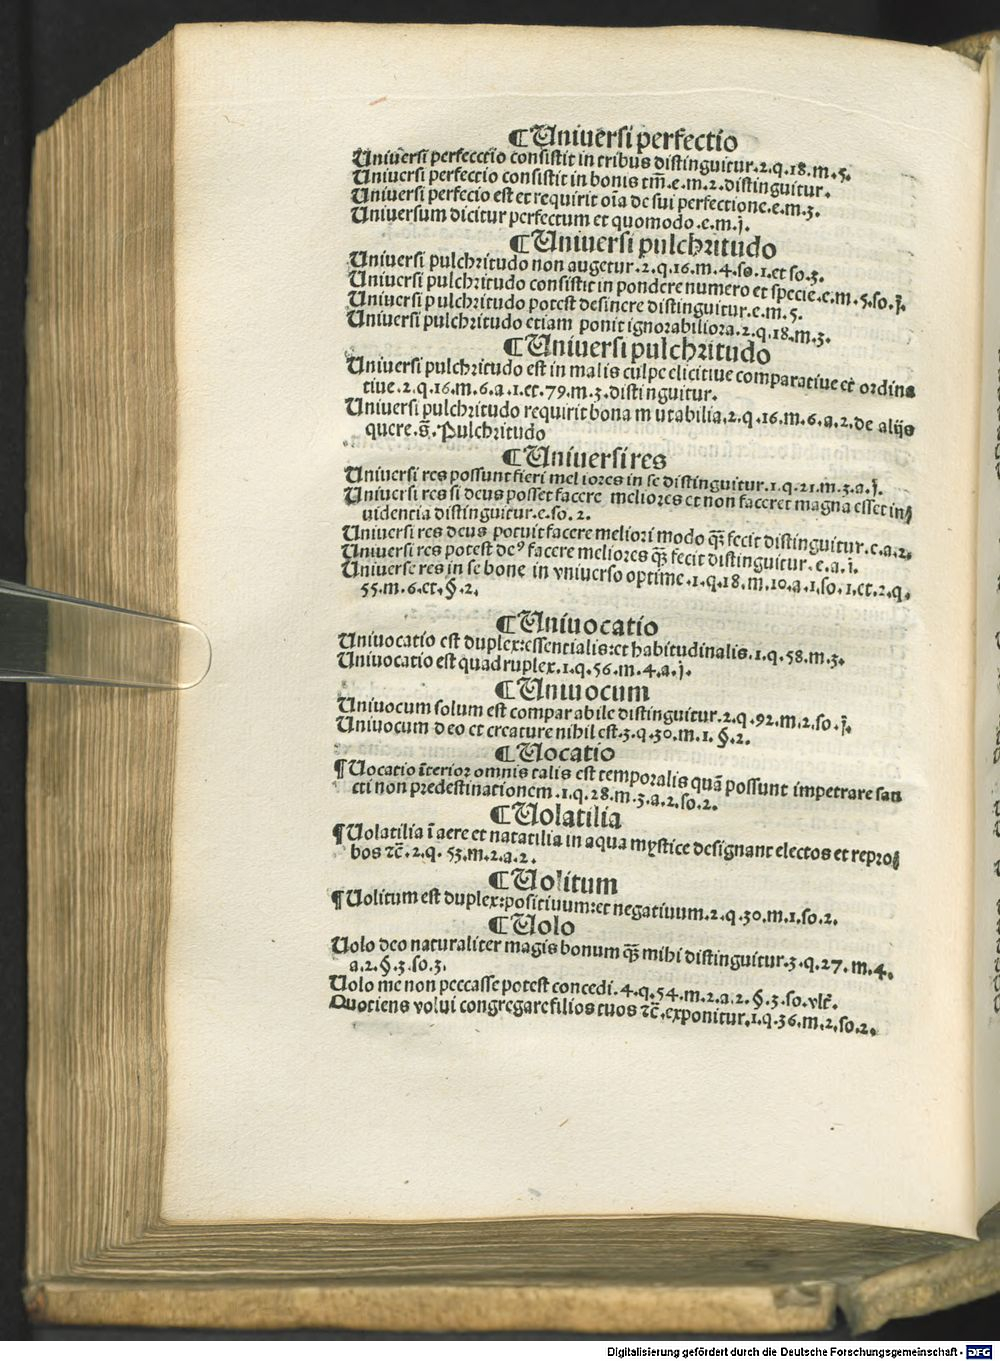 ¶Uniuersi perfectio
Uniuersi perfecctio consistit in tribus distinguitur.2.q.18.m.5.
Uniuersi perfectio consistit in bonis tm̄.e.m.2.distinguitur.
Uniuersi perfecio est et requirit oīa de sui perfectione.e.m.3.
Uniuersum dicitur perfectum et quomodo.e.m.j.
¶Uniuersi pulchritudo
Uniuersi pulchritudo non augetur.2.q.16.m.4.so.1.et so.3.
Uniuersi pulchritudo consistit in pondere numero et specie.e.m.5.so.j.
Uniuersi pulchritudo potest desinere distinguitur.e.m.5.
Uniuersi pulchritudo etiam ponit ignorabiliora.2.q.18.m.3.
¶Uniuersi pulchritudo
Uniuersi pulchritudo est in malis culpe elicitiue comparatiue et ordina
tiue.2.q.16.m.6.a.1.et.79.m.3.distinguitur.
Uniuersi pulchritudo requirit bona mutabilia.2.q.16.m.6.a.2.de alijs
quere.s̄.Pulchritudo
¶Uniuersi res
Uniuersi res possunt fieri meliores in se distinguitur.1.q.21.m.3.a.j.
Uniuersi res si deus posset facere meliores et non faceret magna esset in
uidentia distinguitur.e.so.2.
Uniuersi res deus potuit facere meliori modo q̄ꝫ fecit distinguitur.e.a.2.
Uniuersi res potest deꝰ facere meliores q̄ꝫ fecit distinguitur.e.a.i.
Uniuerse res in se bone in vniuerso optime.1.q.18.m.10.a.1.so.1.et.2.q.
55.m.6.et.§.2.
¶Uniuocatio
Uniuocatio est duplex:essencialis:et habitudinalis.1.q.58.m.3.
Uniuocatio est quadruplex.1.q.56.m.4.a.j.
¶Uniuocum
Uniuocum solum est comparabile distinguitur.2.q.92.m.2.so.j.
Uniuocum deo et creature nihil est.3.q.30.m.1.§.2.
¶Uocatio
¶Uocatio īterior omnis talis est temporalis quā possunt impetrare san
cti non predestinationem.1.q.28.m.3.a.2.so.2.
¶Uolatilia
¶Uolatilia ī aere et natatilia in aqua mystice designant electos et repro
bos ⁊c̄.2.q.53.m.2.a.2.
¶Uolitum
¶Uolitum est duplex:positiuum:et negatiuum.2.q.30.m.1.so.2.
¶Uolo
Uolo deo naturaliter magis bonum q̄ꝫ mihi distinguitur.3.q.27.m.4.
a.2.§.3.so.3.
Uolo me non peccasse potest concedi.4.q.54.m.2.a.2.§.3.so.vlt̄.
Quotiens volui congregare filios tuos ⁊c̄.exponitur.1.q.36.m.2.so.2.
Digitalisierung gefördert durch die Deutsche Forschungsgemeinschaft - DFG